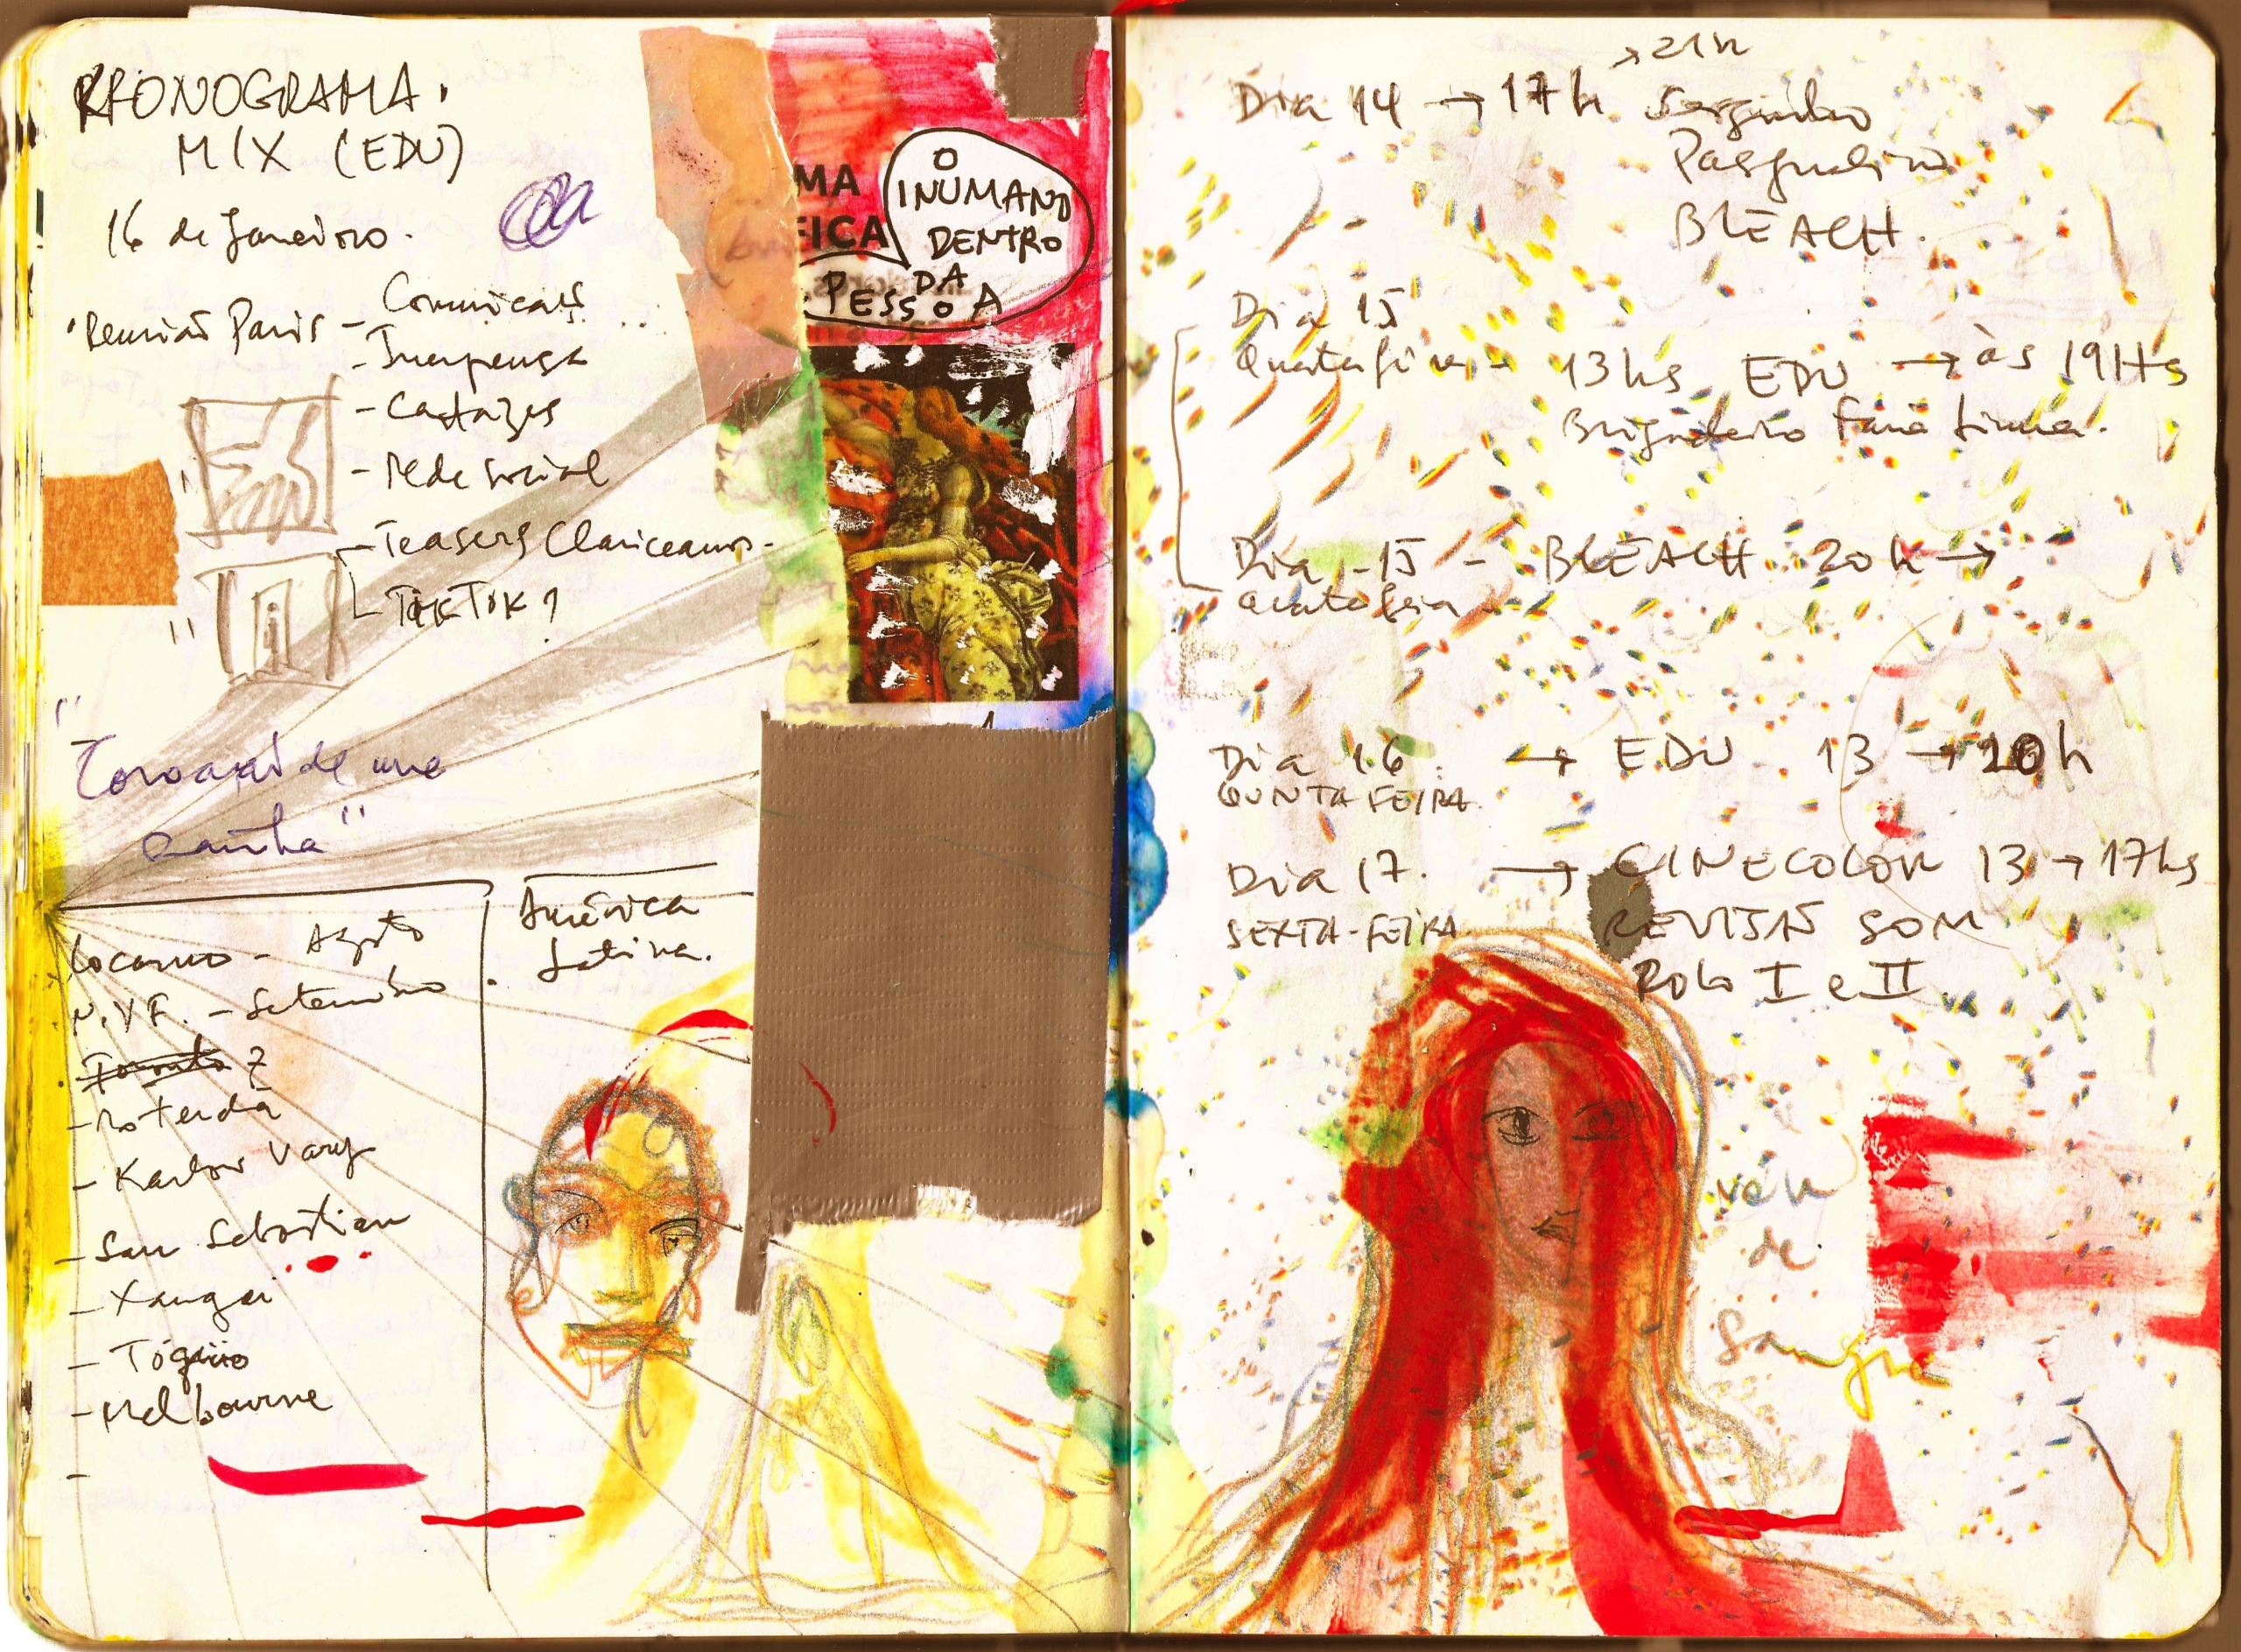 KRONOGRAMA.
MIX (EDU)
16 de Janeiro.
Reunião Paris - Comunicaçs
- Imprensa
- Cartazes
- Rede social
- Teasers Clariceanos.
TikTok?
"Coroação de uma
rainha"
Locarno - Agosto
N.Y.F. - Setembro
Toronto ?
- Roterdã
- Karlov Vary
- San Sebastian
- Xangai
- Tóquio
- Melbourne
-
América
Latina.
MA
FICA
O
INUMANO
DENTRO
DA
PESSOA
→ 21h
Dia 14 → 17h Serginho
Pasqualino
BLEACH.
Dia 15
Quarta feira - 13hs EDU → às 19Hs
Brigadeiro Faria Lima.
Dia 15 - BLEACH 20h →
Quarta feira
Dia 16 → EDU 13 → 20h
QUINTA-FEIRA
Dia 17. → CINECOLOR 13 → 17hs
SEXTA-FEIRA REVISÃO SOM
Rolo I e II
véu
de
Sangue